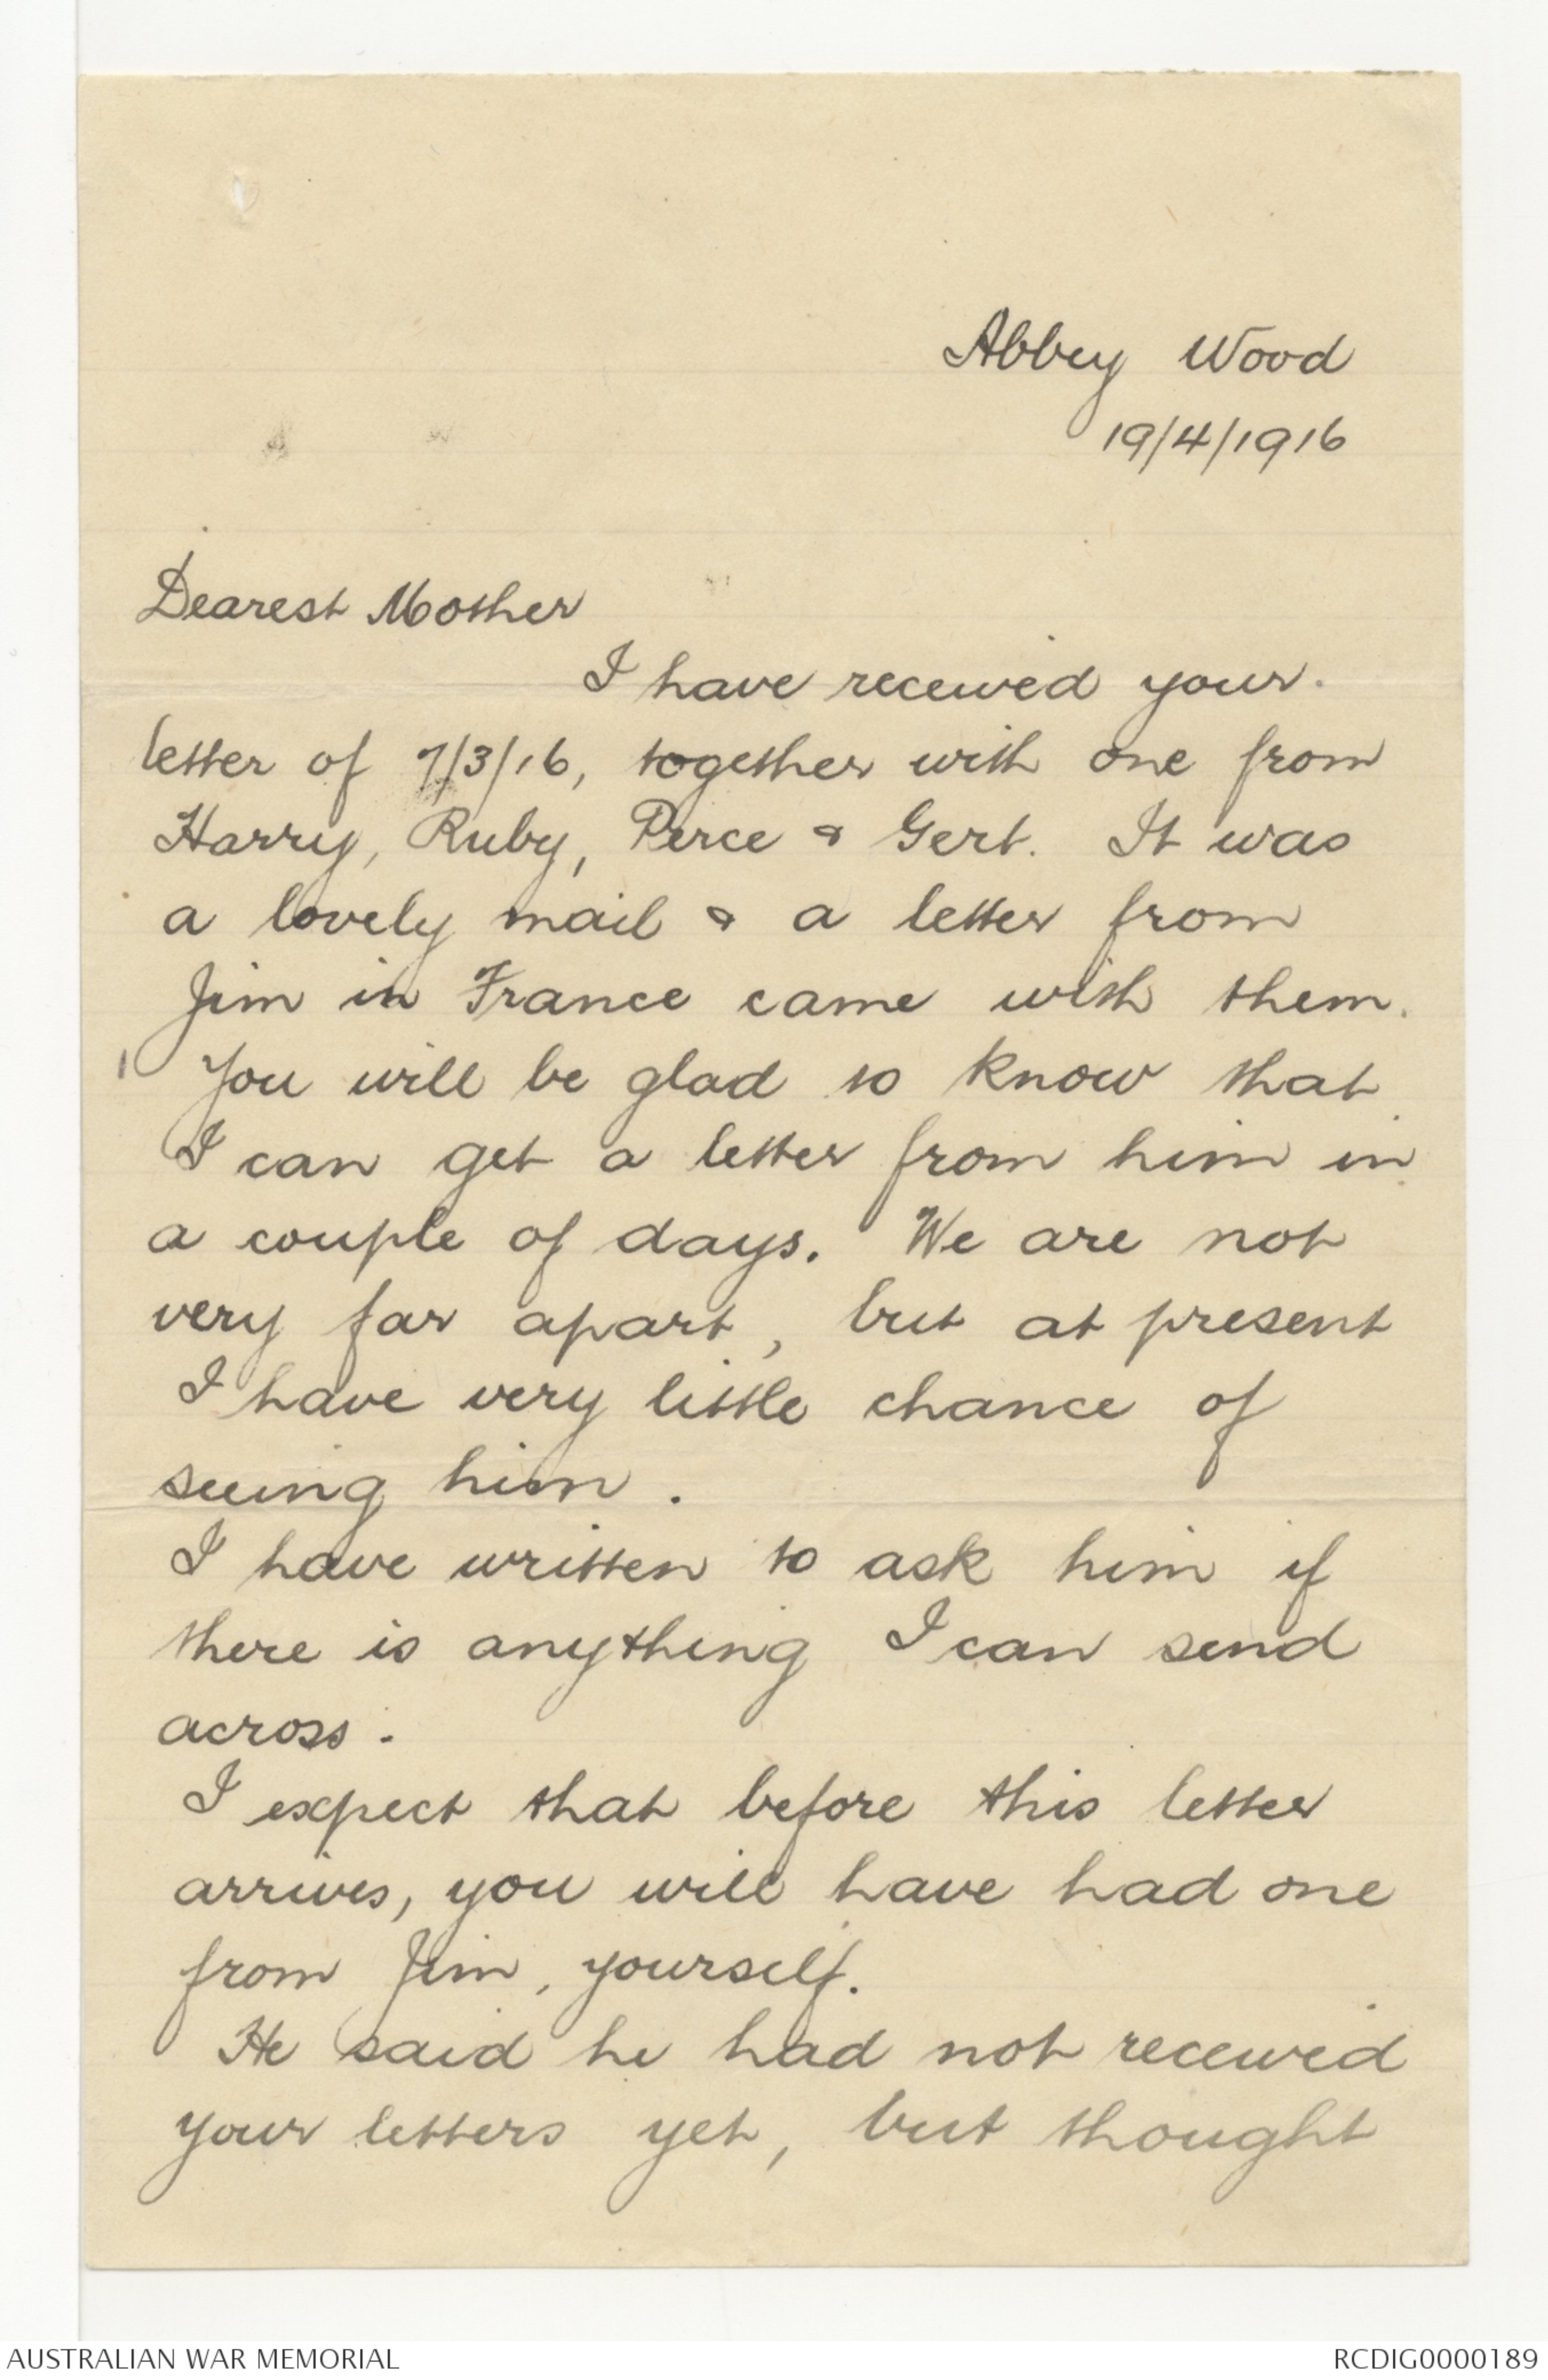 Abbey Wood
19/4/1916
Dearest Mother
I have received your.
letter of 7/3/16, together with one from
Harry, Ruby, Perce & Gert. It was
a lovely mail & a letter from
Jim in France came with them.
You will be glad to know that
I can get a letter from him in
a couple of days. We are not
very far apart, but at present
I have very little chance of
seeing him.
I have written to ask him if
there is anything I can send
across.
I expect that before this letter
arrives, you will have had one
from Jim, yourself.
He said he had not received
your letters yet, but thought
AUSTRALIAN WAR MEMORIAL
RCDIG0000189